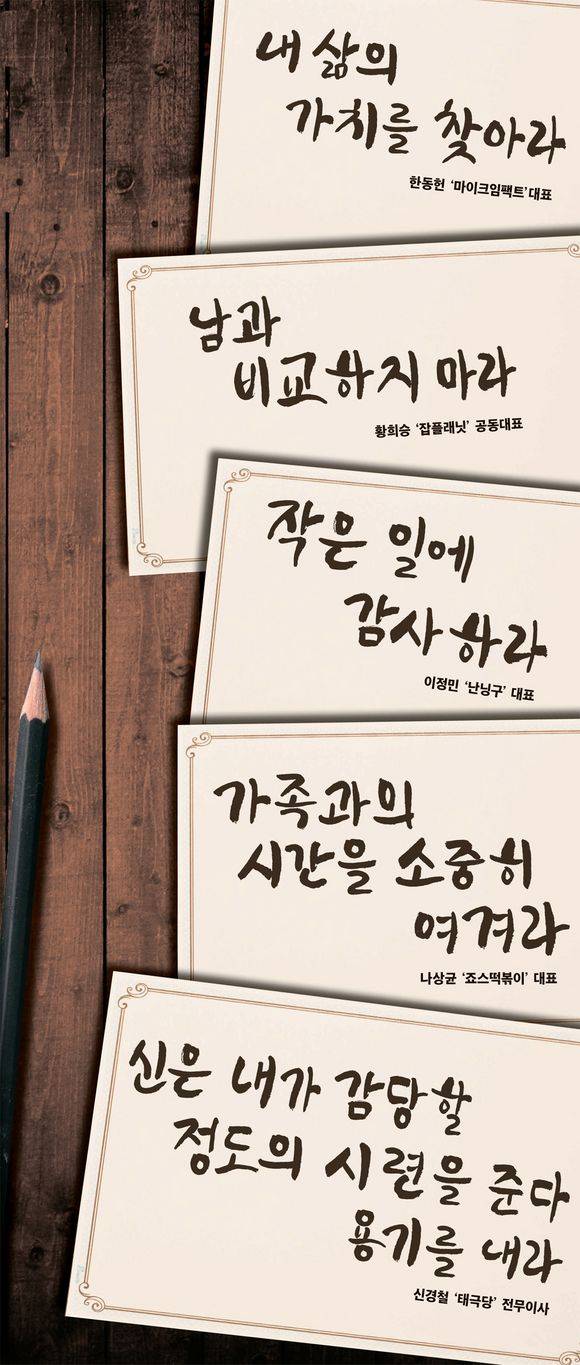 내 삶의
가치를 찾아라
한동헌 '마이크임팩트' 대표
남과
비교하지 마라
황희승 '잡플래닛' 공동대표
작은 일에
감사하라
이정민 '난닝구' 대표
가족과의
시간을 소중히
여겨라
나상균 '죠스떡볶이' 대표
신은 내가 감당할
정도의 시련을 준다
용기를 내라
신경철 '태극당' 전무이사